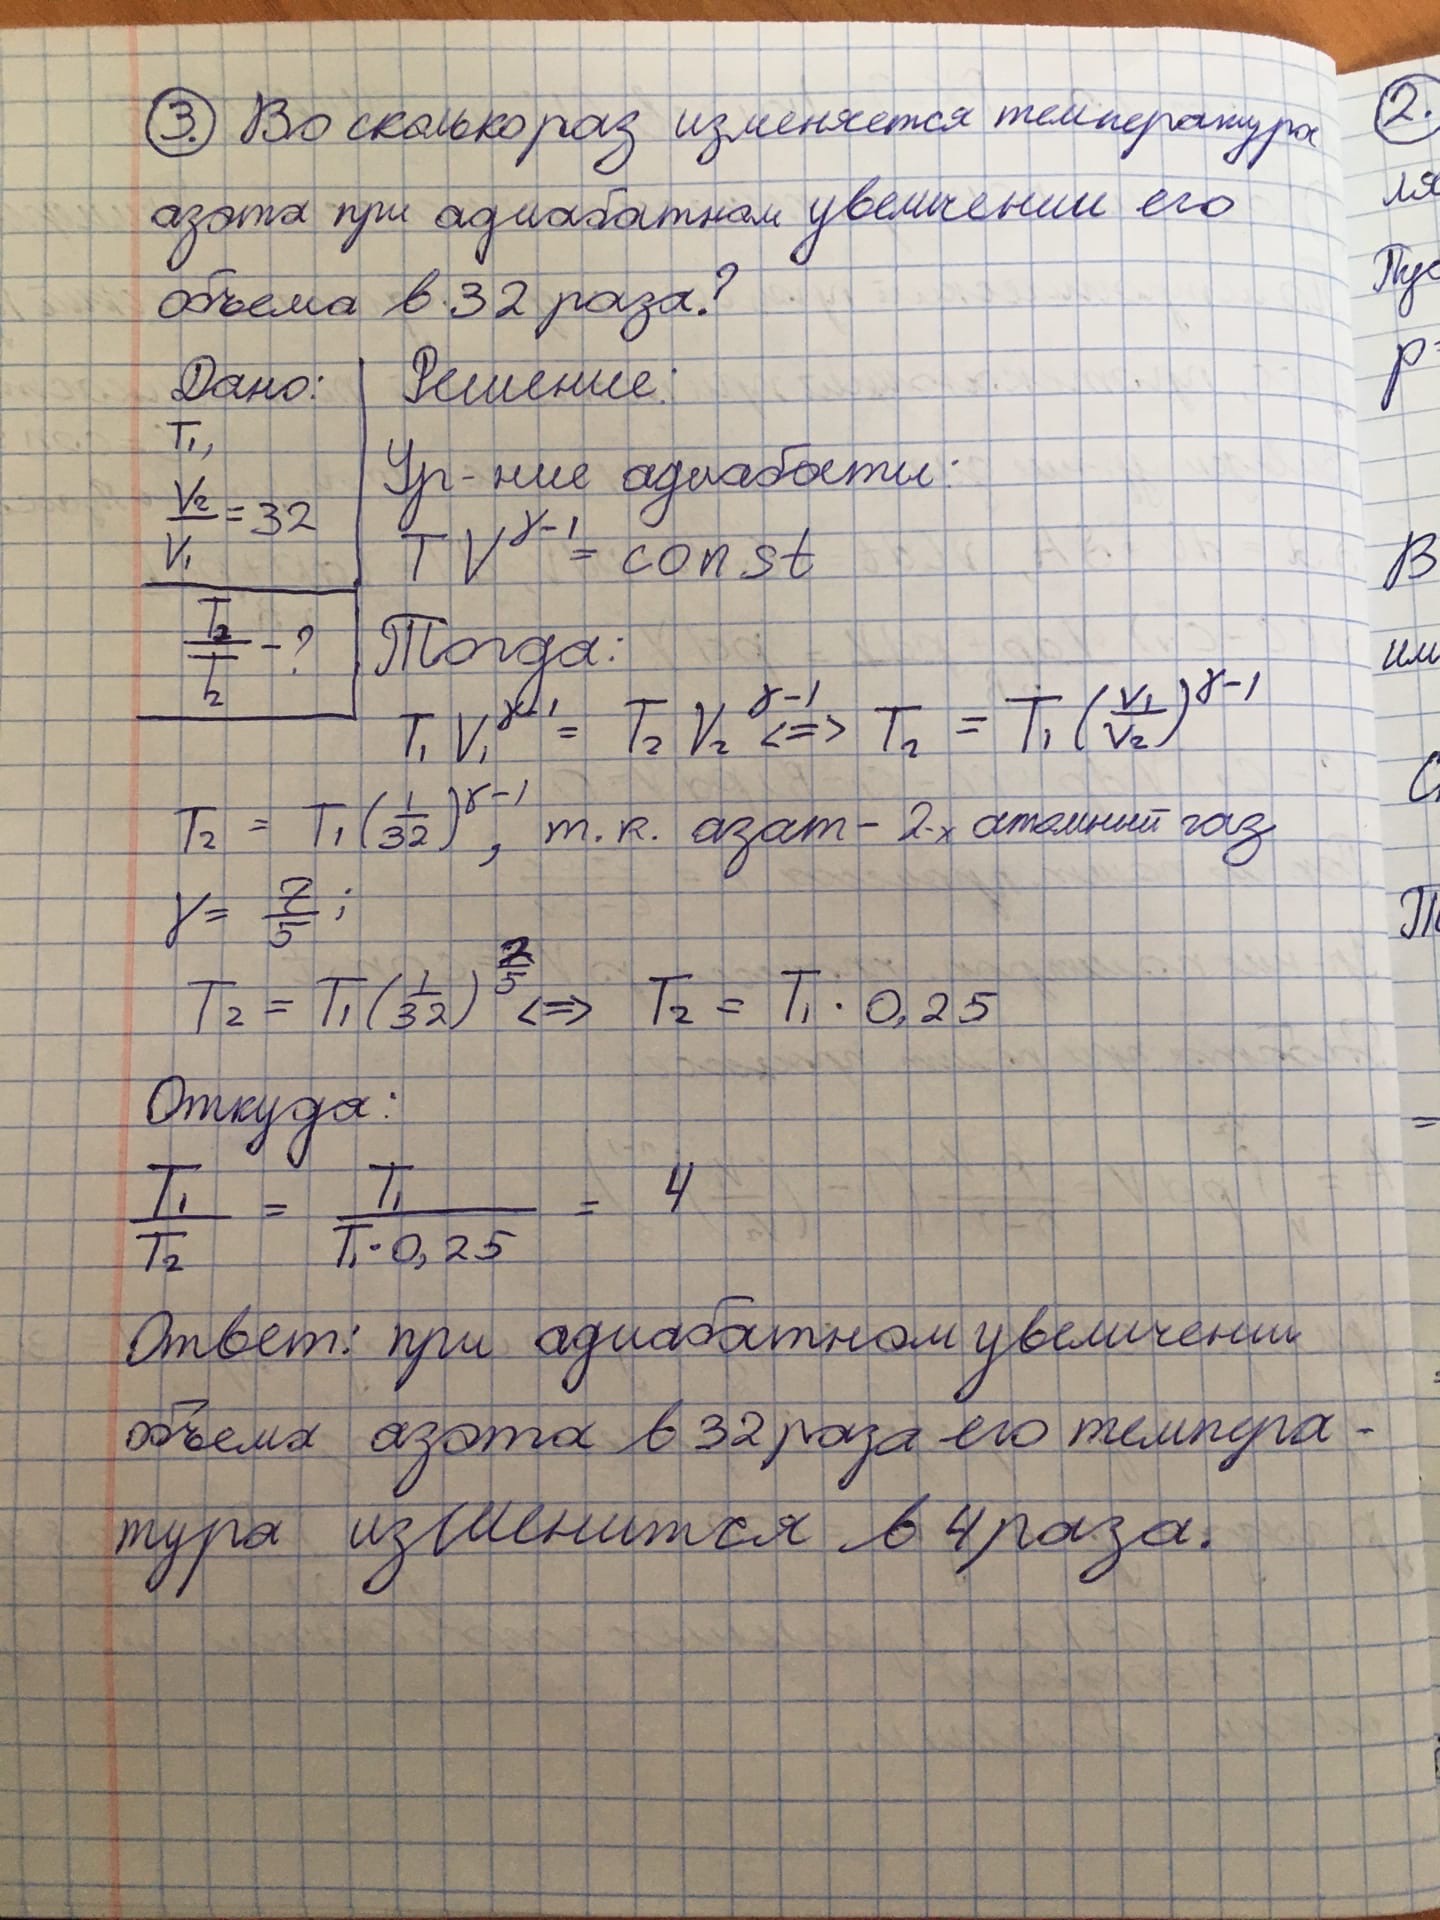 3. Во сколько раз изменяется температура
азота при адиабатном увеличении его
объема в 32 раза?
Дано:
T₁,
V₂/V₁ = 32
T₂/T₂ - ?
Решение:
Ур-ние адиабаты:
T V^(γ-1) = const
Тогда:
T₁ V₁^(γ-1) = T₂ V₂^(γ-1) <=> T₂ = T₁ (V₁/V₂)^(γ-1)
T₂ = T₁ (1/32)^(γ-1), т.к. азот - 2-х атомный газ
γ = 7/5;
T₂ = T₁ (1/32)^(2/5) <=> T₂ = T₁ · 0,25
Откуда:
T₁/T₂ = T₁/(T₁ · 0,25) = 4
Ответ: при адиабатном увеличении
объема азота в 32 раза его темпера-
тура изменится в 4 раза.
2.
ля
Пус
p=
В
им
То
=